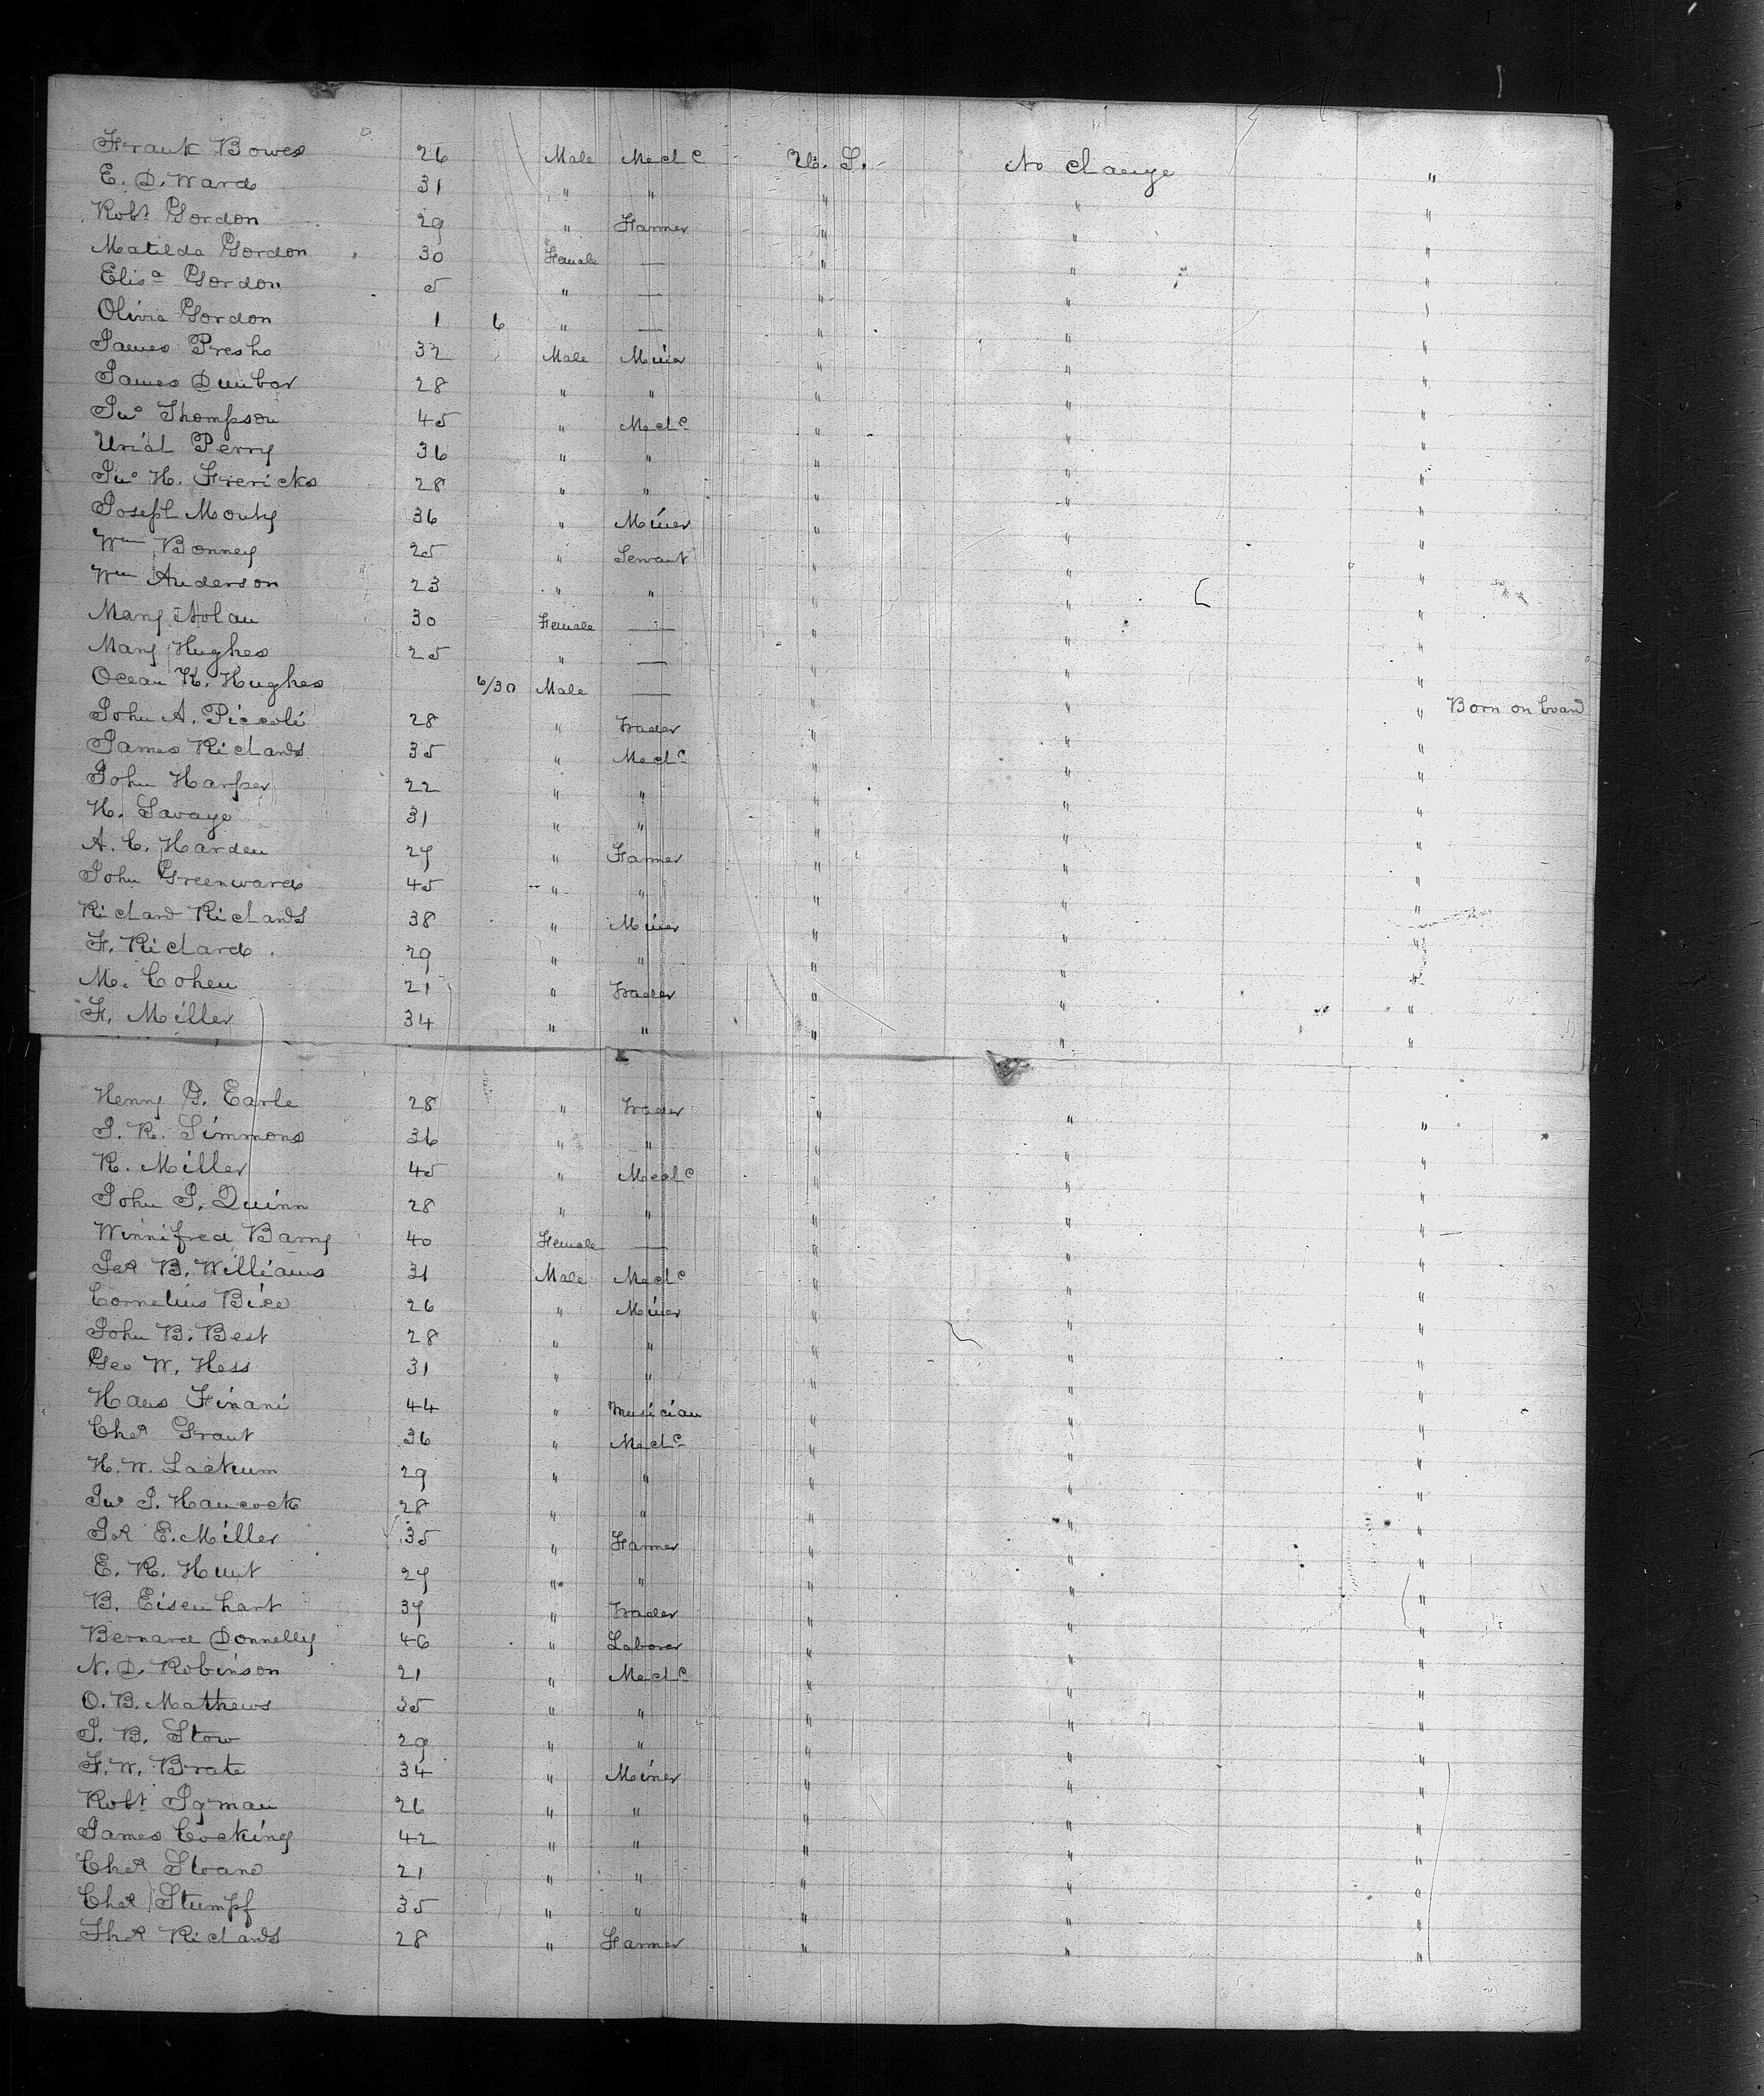 Frank Bowes 26 Male Mech<sup>c</sup> U. S. No change "
E. D. Ward 31 " " " " "
Rob<sup>t</sup> Gordon 29 " Farmer " " "
Matilda Gordon 30 Female — " " "
Elis<sup>a</sup> Gordon 5 " — " " "
Olivia Gordon 1 6 " — " " "
James Presho 32 Male Miner " " "
James Dunbar 28 " " " " "
Jn<sup>o</sup> Thompson 45 " Mech<sup>c</sup> " " "
Uriah Perry 36 " " " " "
Jn<sup>o</sup> H. Frericks 28 " " " " "
Joseph Monty 36 " Miner " " "
W<sup>m</sup> Bonney 25 " Servant " " "
W<sup>m</sup> Anderson 23 " " " " "
Mary Nolan 30 Female — " " "
Mary Hughes 25 " — " " "
Ocean K. Hughes 6/30 Male — " " " Born on board
John A. Piccoli 28 " Trader " " "
James Richards 35 " Mech<sup>c</sup> " " "
John Harper 22 " " " " "
H. Savage 31 " " " " "
A. C. Harden 27 " Farmer " " "
John Greenward 45 " " " " "
Richard Richards 38 " Miner " " "
F. Richard 29 " " " " "
M. Cohen 21 " Trader " " "
F. Miller 34 " " " " "
Henry G. Earle 28 " Trader " " "
J. R. Simmons 36 " " " " "
R. Miller 45 " Mech<sup>c</sup> " " "
John J. Quinn 28 " " " " "
Winnifred Barry 40 Female — " " "
B. Williams 31 Male Mech<sup>c</sup> " " "
Cornelius Bice 26 " Miner " " "
John B. Best 28 " " " " "
Geo W. Hess 31 " " " " "
Hans Finani 44 " Musician " " "
Cha<sup>s</sup> Grant 36 " Mech<sup>c</sup> " " "
H. W. Lackum 29 " " " " "
Jn<sup>o</sup> J. Hancock 28 " " " " "
E. Miller 35 " Farmer " " "
E. R. Hunt 27 " " " " "
B. Eisenhart 37 " Trader " " "
Bernard Donnelly 46 " Laborer " " "
N. D. Robinson 21 " Mech<sup>c</sup> " " "
O. B. Mathews 35 " " " " "
J. B. Stow 29 " " " " "
F. W. Brate 34 " Miner " " "
Rob<sup>t</sup> 26 " " " " "
James Cocking 42 " " " " "
Cha<sup>s</sup> Sloane 21 " " " " "
Cha<sup>s</sup> Stumpf 35 " " " " "
Tho<sup>s</sup> Richards 28 " Farmer " " "